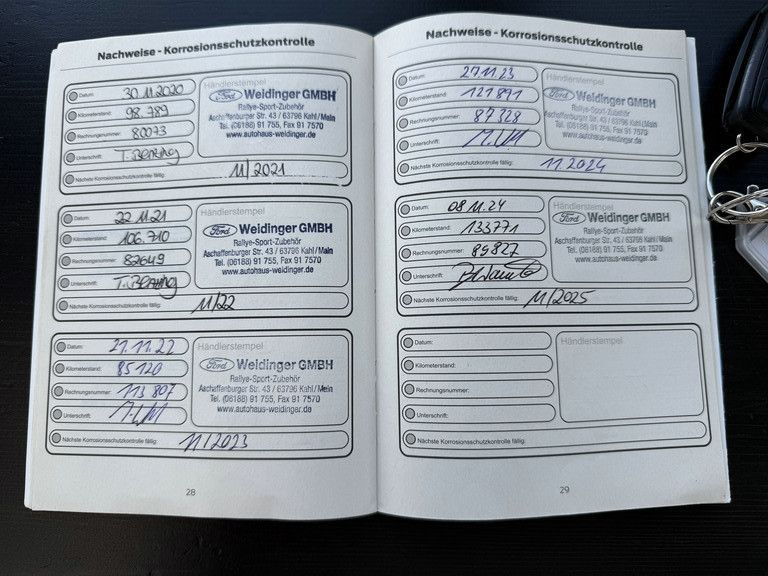 Nachweise - Korrosionsschutzkontrolle
Datum: 30.11.2020
Kilometerstand: 98.789
Rechnungsnummer: 80073
Unterschrift:
Händlerstempel
Ford Weidinger GMBH
Rallye-Sport-Zubehör
Aschaffenburger Str. 43 / 63796 Kahl/Main
Tel. (06188) 91 755, Fax 91 7570
www.autohaus-weidinger.de
Nächste Korrosionsschutzkontrolle fällig: 11/2021
Datum: 22.11.21
Kilometerstand: 106.710
Rechnungsnummer: 82649
Unterschrift:
Händlerstempel
Ford Weidinger GMBH
Rallye-Sport-Zubehör
Aschaffenburger Str. 43 / 63796 Kahl/Main
Tel. (06188) 91 755, Fax 91 7570
www.autohaus-weidinger.de
Nächste Korrosionsschutzkontrolle fällig: 11/22
Datum: 21.11.22
Kilometerstand: 85120
Rechnungsnummer: 113807
Unterschrift:
Händlerstempel
Ford Weidinger GMBH
Rallye-Sport-Zubehör
Aschaffenburger Str. 43 / 63796 Kahl/Main
Tel. (06188) 91 755, Fax 91 7570
www.autohaus-weidinger.de
Nächste Korrosionsschutzkontrolle fällig: 11/2023
28
Nachweise - Korrosionsschutzkontrolle
Datum: 27.11.23
Kilometerstand: 121891
Rechnungsnummer: 87328
Unterschrift:
Händlerstempel
Ford Weidinger GMBH
Rallye-Sport-Zubehör
Aschaffenburger Str. 43 / 63796 Kahl/Main
Tel. (06188) 91 755, Fax 91 7570
www.autohaus-weidinger.de
Nächste Korrosionsschutzkontrolle fällig: 11.2024
Datum: 08.11.24
Kilometerstand: 133771
Rechnungsnummer: 89827
Unterschrift:
Händlerstempel
Ford Weidinger GMBH
Rallye-Sport-Zubehör
Aschaffenburger Str. 43 / 63796 Kahl/Main
Tel. (06188) 91 755, Fax 91 7570
www.autohaus-weidinger.de
Nächste Korrosionsschutzkontrolle fällig: 11/2025
Datum:
Kilometerstand:
Rechnungsnummer:
Unterschrift:
Händlerstempel
Nächste Korrosionsschutzkontrolle fällig:
29